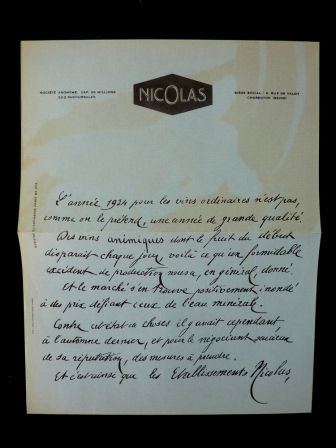 NICOLAS
SOCIÉTÉ ANONYME, CAP. 20 MILLIONS
SIÈGE SOCIAL : 2, RUE DE VALMY
CHARENTON (SEINE)
L'année 1924 pour les vins ordinaires n'est pas,
comme on le prétend, une année de grande qualité.
Des vins animiques dont le fruit du début
disparaît chaque jour, voilà ce qu'un formidable
excédent de production nous a, en général, donné.
Et le marché s'en trouve positivement inondé
à des prix défiant ceux de l'eau minérale.
Contre cet état de choses il y avait cependant,
à l'automne dernier, et pour le négociant soucieux
de sa réputation, des mesures à prendre.
Et c'est ainsi que les Etablissements Nicolas,